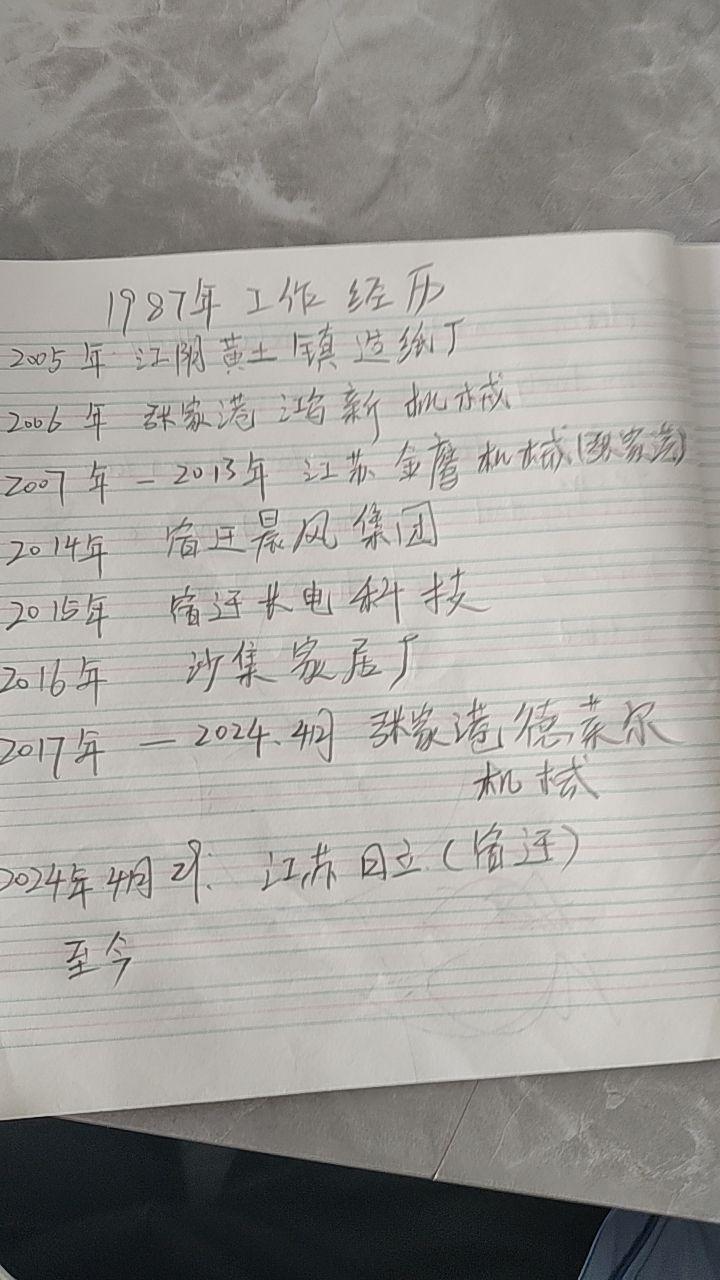 1987年 工作经历
2005年 江阴黄土镇造纸厂
2006年 张家港 鸿新机械
2007年 — 2013年 江苏金鹰机械(张家港)
2014年 宿迁晨风集团
2015年 宿迁长电科技
2016年 沙集家居厂
2017年 — 2024.4月 张家港德莱尔
机械
2024年4月 江苏日立(宿迁)
至今